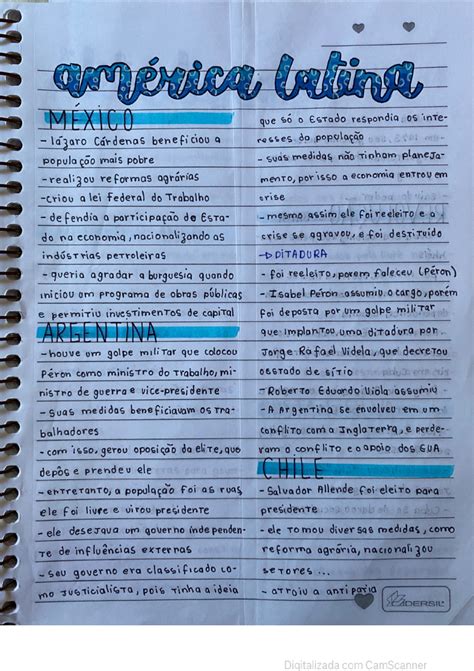 américa latina
MÉXICO
- lázaro Cárdenas beneficiou a
população mais pobre
- realizou reformas agrárias
- criou a lei Federal do Trabalho
- defendia a participação de Esta-
do na economia, nacionalizando as
indústrias petroleiras
- queria agradar a burguesia quando
iniciou um programa de obras públicas
e permitiu investimentos de capital
ARGENTINA
- houve um golpe militar que colocou
Péron como ministro do Trabalho, mi-
nistro de guerra e vice-presidente
- suas medidas beneficiavam os tra-
balhadores
- com isso, gerou oposição da elite, que
depôs e prendeu ele
- entretanto, a população foi as ruas,
ele foi livre e virou presidente
- ele desejava um governo independen-
te de influências externas
- seu governo era classificado co-
mo Justicialista, pois tinha a ideia
que só o Estado respondia os inte-
resses da população
- suas medidas não tinham planeja-
mento, por isso a economia entrou em
crise
- mesmo assim ele foi reeleito e a
crise se agravou, e foi destituído
→ DITADURA
- foi reeleito, porem faleceu (Péron)
- Isabel Péron assumiu o cargo, porém
foi deposta por um golpe militar
que implantou uma ditadura por
Jorge Rafael Videla, que decretou
estado de sítio
- Roberto Eduardo Viola assumiu
- A Argentina se envolveu em um
conflito com a Inglaterra, e perde-
ram o conflito e o apoio dos EUA
CHILE
- Salvador Allende foi eleito para
presidente
- ele tomou diversas medidas, como
reforma agrária, nacionalizou
setores ...
- atraiu a antipatia
Digitalizada com CamScanner